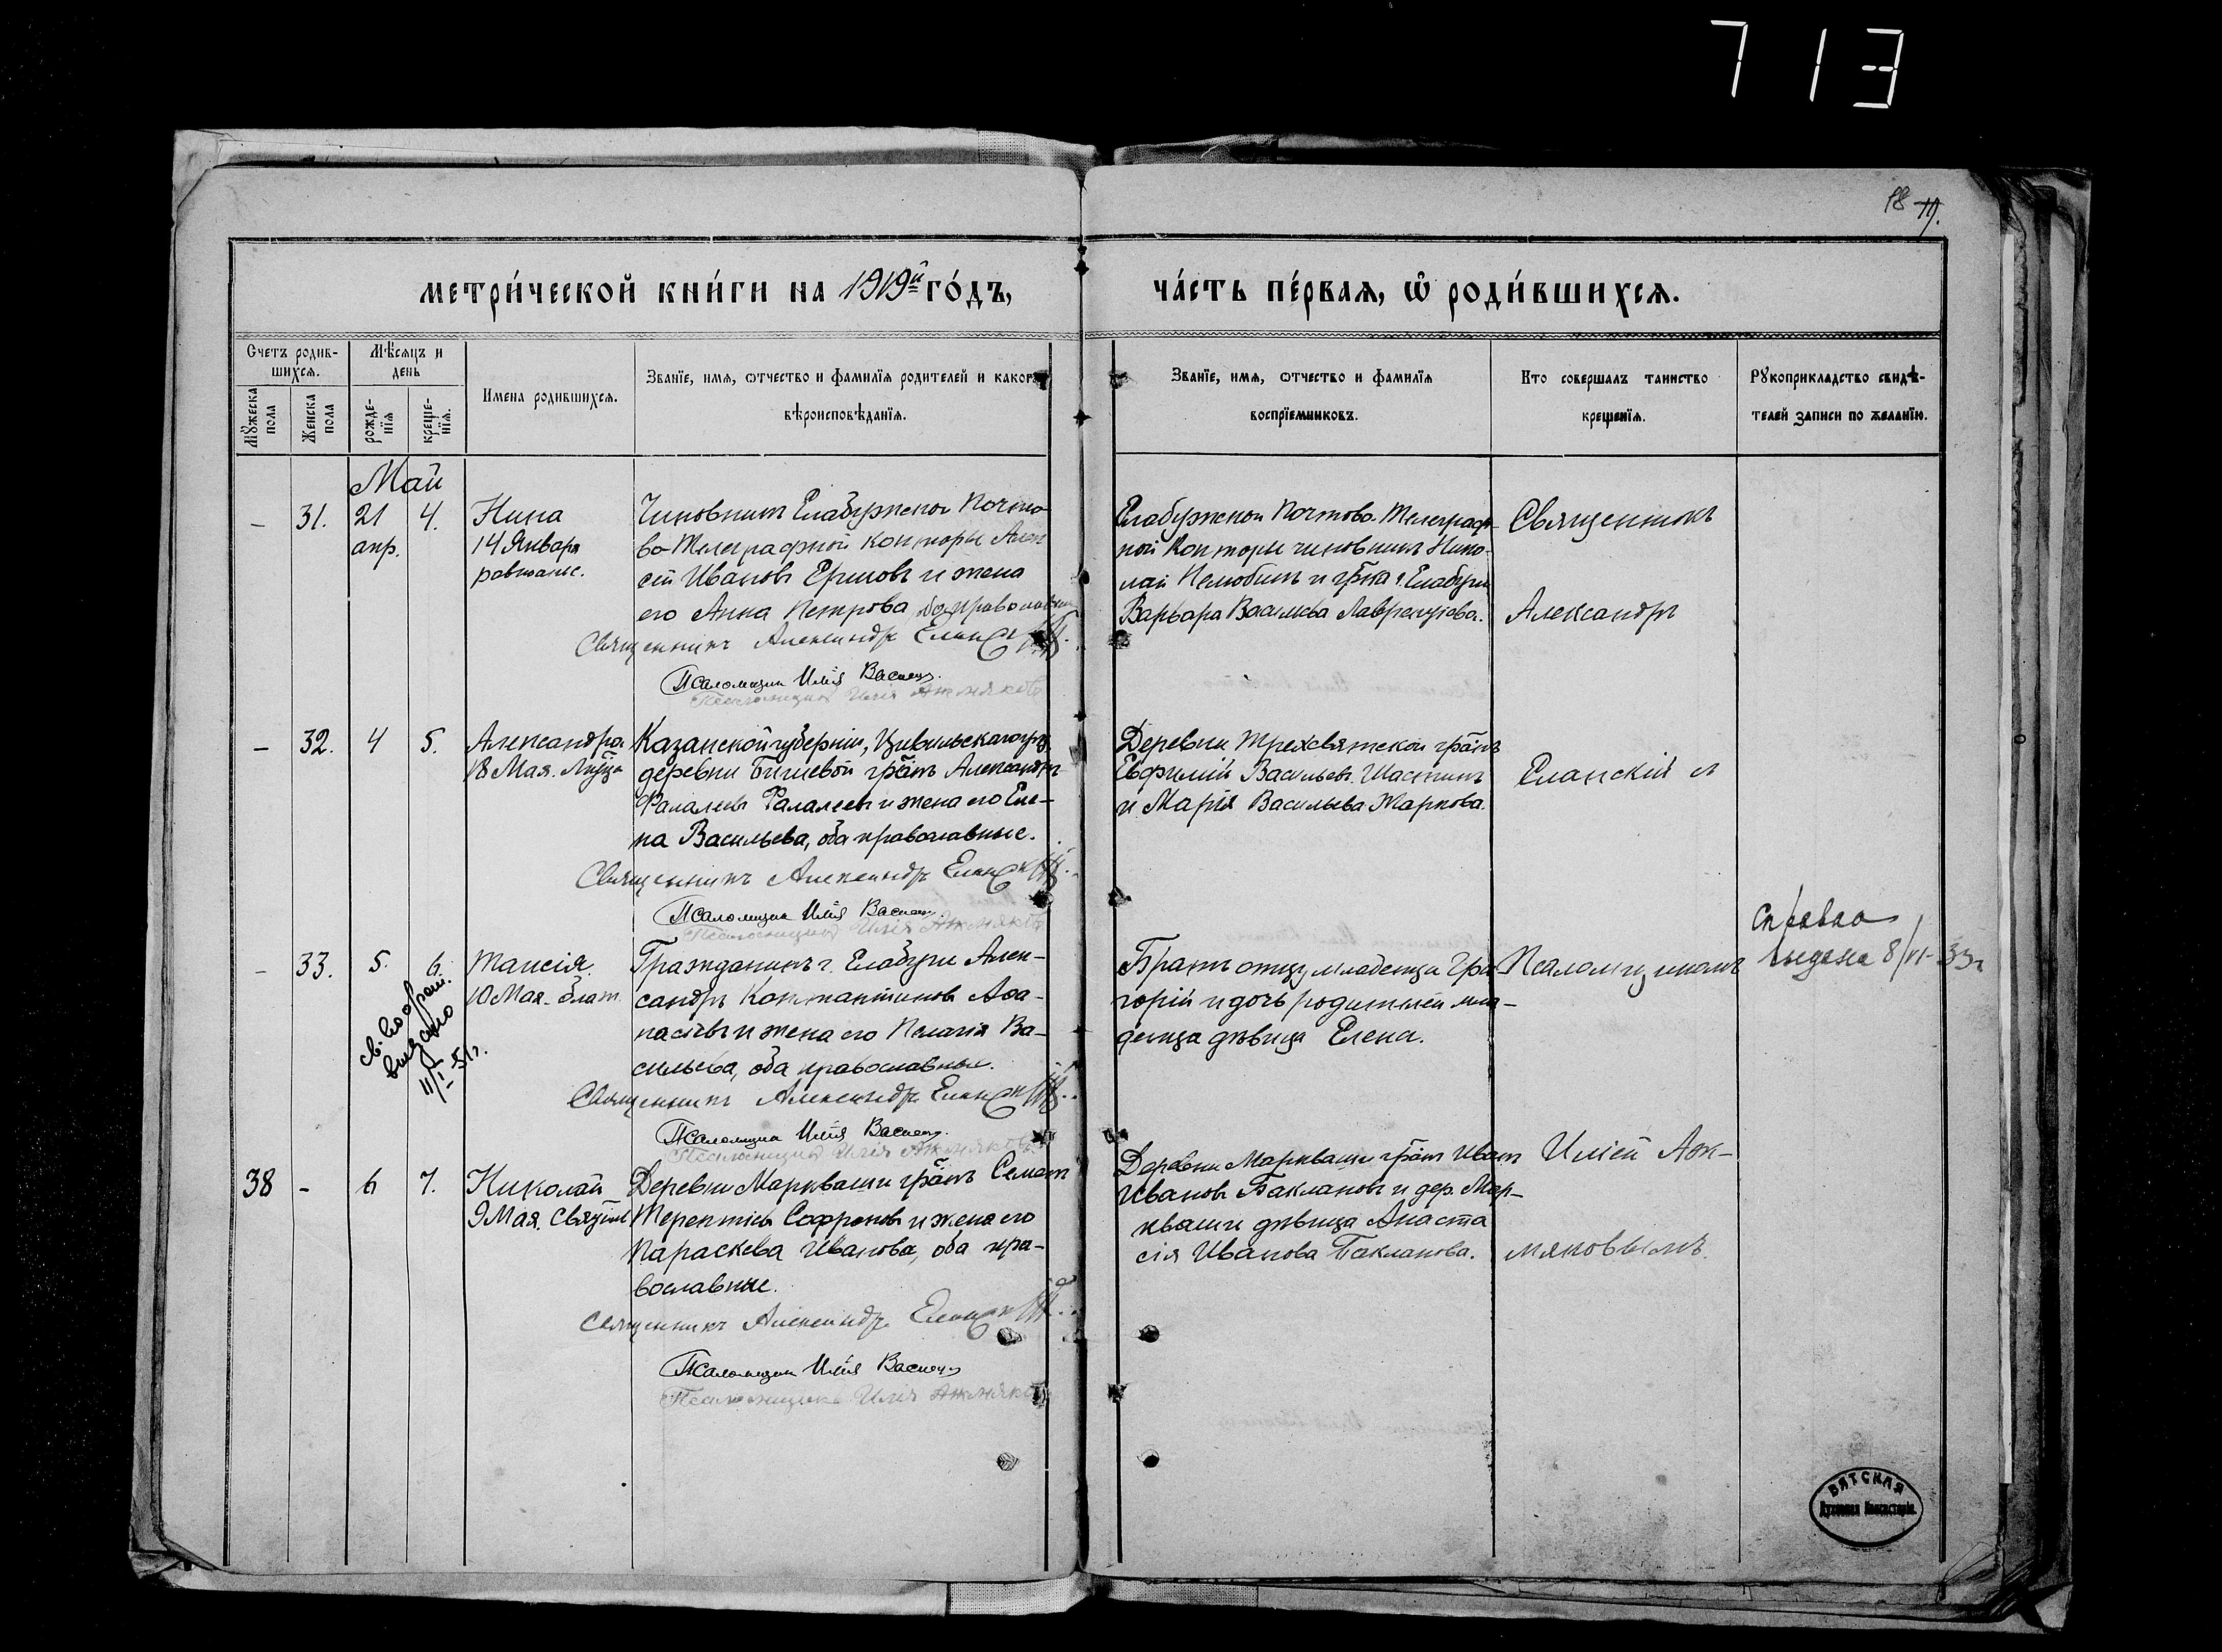 713
18 19.
метри́ческой кни́ги на 1919й го́дъ,
ча́сть пе́рвая, ѽ роди́вшихсѧ.
Счетъ родив-
шихсѧ.
Мѣсѧцъ и
день
Мꙋжеска
пола
Женска
пола
рожде-
нїѧ
креще-
нїѧ.
Имена родившихсѧ.
Званїе, имѧ, ѿчество и фамилїѧ родителей и какогѡ
вѣроисповѣданїѧ.
Званїе, имѧ, ѿчество и фамилїѧ
воспрїемниковъ.
Кто совершалъ таинство
крещенїѧ.
Рꙋкоприкладство свидѣ-
телей записи по желанїю.
Май
– 31. 21 апр. 4.
Нина
14 Января
равноапс.
Чиновникъ Елабужской Почто-
во-Телеграфной конторы Алек
сѣй Ивановъ Ершовъ и жена
его Анна Петрова оба православные
Священникъ Александръ Еланскій.
Псаломщик Илія Васнец.
Псаломщикъ Илія Ажмяковъ
Елабужской Почтово-Телеграф-
ной Конторы чиновникъ Нико-
лай Нелюбинъ и гр̃ка г. Елабуги
Варвара Васильева Лаврентьева.
Священникъ
Александръ
– 32. 4 5.
Александра
18 Мая. Муч̃ца
Казанской губерніи, Цивильскаго уѣз.
деревни Бигиевой гр̃нъ Александръ
Фалалеевъ Фалалеевъ и жена его Еле-
на Васильева, оба православные.
Священникъ Александръ Еланскій.
Псаломщик Илія Васнец.
Псаломщикъ Илія Ажмяковъ
Деревни Трехсвятской гр̃нъ
Евфимій Васильевъ Шастинъ
и Марія Васильева Жаркова.
Еланскій с
– 33. 5. 6.
Таисія.
10 Мая. блаж.
св. во
выдано
11/I 51г.
Гражданинъ г. Елабуги Алек-
сандръ Константиновъ Афа-
насьевъ и жена его Пелагія Ва-
сильева, оба православные.
Священникъ Александръ Еланскій.
Псаломщик Илія Васнец.
Псаломщикъ Илія Ажмяковъ
Братъ отцу младенца Гри-
горій и дочь родителей мла-
денца дѣвица Елена.
Псаломщикомъ
Справка
выдана 8/VI-33г
38 – 6 7.
Николай
9 Мая. Святит
Деревни Маркваши гр̃нъ Семенъ
Терентіевъ Софроновъ и жена его
Параскева Иванова, оба пра-
вославные.
Священникъ Александръ Еланскій.
Псаломщик Илія Васнец.
Псаломщикъ Илія Ажмяковъ
Деревни Маркваши гр̃нъ Иванъ
Ивановъ Баклановъ и дер. Мар-
кваши дѣвица Анаста
сія Иванова Бакланова.
Иліей Аж-
мяковымъ.
ВЯТСКАЯ
Духовная Консисторія.